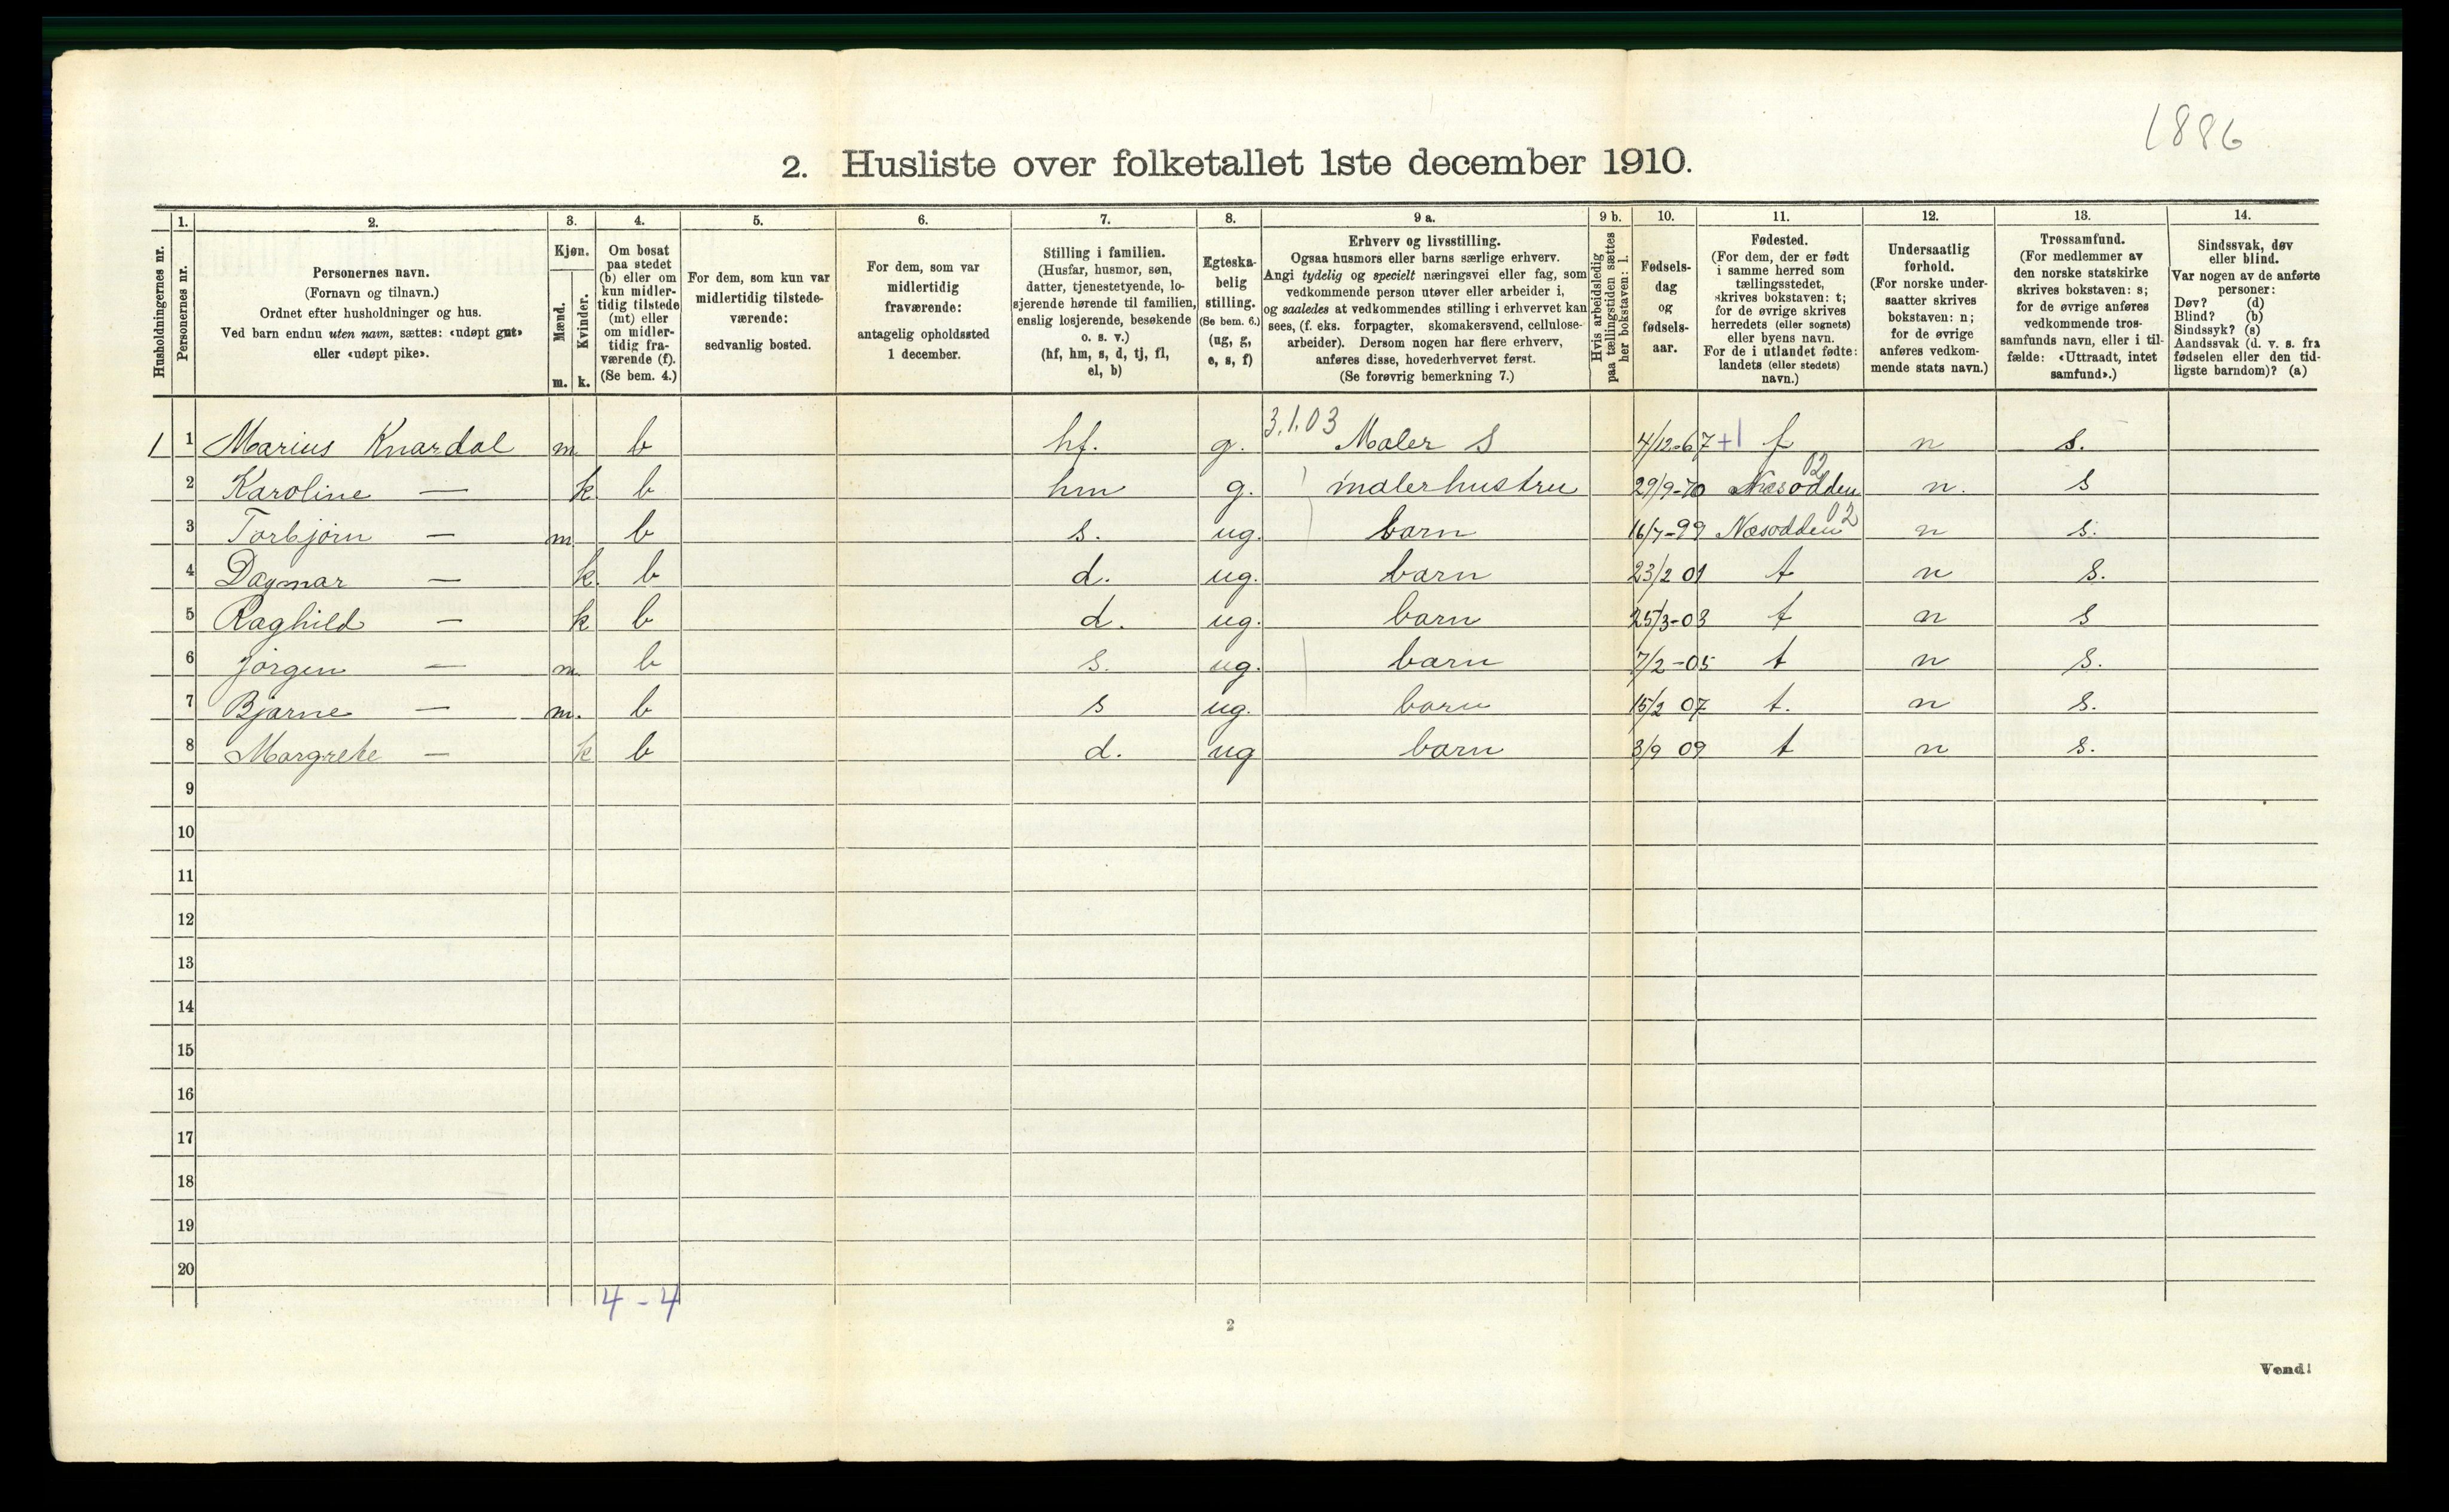 1886
2. Husliste over folketallet 1ste december 1910.
Husholdningernes nr.
1.
Personernes nr.
2.
Personernes navn.
(Fornavn og tilnavn.)
Ordnet efter husholdninger og hus.
Ved barn endnu uten navn, sættes: «udøpt gut»
eller «udøpt pike».
3.
Kjøn.
Mænd.
Kvinder.
m. k.
4.
Om bosat
paa stedet
(b) eller om
kun midler-
tidig tilstede
(mt) eller
om midler-
tidig fra-
værende (f).
(Se bem. 4.)
5.
For dem, som kun var
midlertidig tilstede-
værende:
sedvanlig bosted.
6.
For dem, som var
midlertidig
fraværende:
antagelig opholdssted
1 december.
7.
Stilling i familien.
(Husfar, husmor, søn,
datter, tjenestetyende, lo-
sjerende hørende til familien,
enslig losjerende, besøkende
o. s. v.)
(hf, hm, s, d, tj, fl,
el, b)
8.
Egteska-
belig
stilling.
(Se bem. 6.)
(ug, g,
e, s, f)
9 a.
Erhverv og livsstilling.
Ogsaa husmors eller barns særlige erhverv.
Angi tydelig og specielt næringsvei eller fag, som
vedkommende person utøver eller arbeider i,
og saaledes at vedkommendes stilling i erhvervet kan
sees, (f. eks. forpagter, skomakersvend, cellulose-
arbeider). Dersom nogen har flere erhverv,
anføres disse, hovederhvervet først.
(Se forøvrig bemerkning 7.)
9 b.
Hvis arbeidsledig
paa tællingstiden sættes
her bokstaven: l.
10.
Fødsels-
dag
og
fødsels-
aar.
11.
Fødested.
(For dem, der er født
i samme herred som
tællingsstedet,
skrives bokstaven: t;
for de øvrige skrives
herredets (eller sognets)
eller byens navn.
For de i utlandet fødte:
landets (eller stedets)
navn.)
12.
Undersaatlig
forhold.
(For norske under-
saatter skrives
bokstaven: n;
for de øvrige
anføres vedkom-
mende stats navn.)
13.
Trossamfund.
(For medlemmer av
den norske statskirke
skrives bokstaven: s;
for de øvrige anføres
vedkommende tros-
samfunds navn, eller i til-
fælde: «Uttraadt, intet
samfund».)
14.
Sindssvak, døv
eller blind.
Var nogen av de anførte
personer:
Døv? (d)
Blind? (b)
Sindssyk? (s)
Aandssvak (d. v. s. fra
fødselen eller den tid-
ligste barndom)? (a)
1 1 Marius Knardal m b hf. g. 3.1.03 Maler S 4/12-67 +1 t n s.
2 Karoline — k b hm g. malerhustru 29/9-70 Næsodden 02 n. s
3 Torbjørn — m b s. ug. barn 16/7-99 Næsodden 02 n s.
4 Dagmar — k. b d. ug. barn 23/2 01 t n s.
5 Raghild — k b d. ug. barn 25/3-03 t n s
6 Jørgen — m. b s. ug. barn 7/2-05 t n s.
7 Bjarne — m. b s ug. barn 15/2 07 t. n s.
8 Margrete — k b d. ug barn 3/9 09 t n s.
9
10
11
12
13
14
15
16
17
18
19
20
4 - 4
2
Vend!